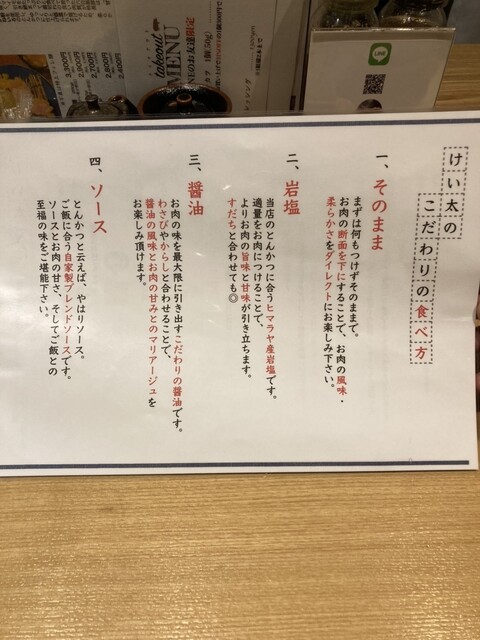 けい太の
こだわりの食べ方
一、そのまま
まずは何もつけずそのままで。
お肉の断面を下にすることで、お肉の風味・
柔らかさをダイレクトにお楽しみ下さい。
二、岩塩
当店のとんかつに合うヒマラヤ産岩塩です。
適量をお肉につけることで、
よりお肉の旨味と甘味が引き立ちます。
すだちと合わせても◎
三、醤油
お肉の味を最大限に引き出すこだわりの醤油です。
わさびやからしと合わせることで、
醤油の風味とお肉の甘みとのマリアージュを
お楽しみ頂けます。
四、ソース
とんかつと云えば、やはりソース。
ご飯に合う自家製ブレンドソースです。
ソースとお肉の甘さ、そしてご飯との
至福の味をご堪能下さい。
takeout
MENU
LINE